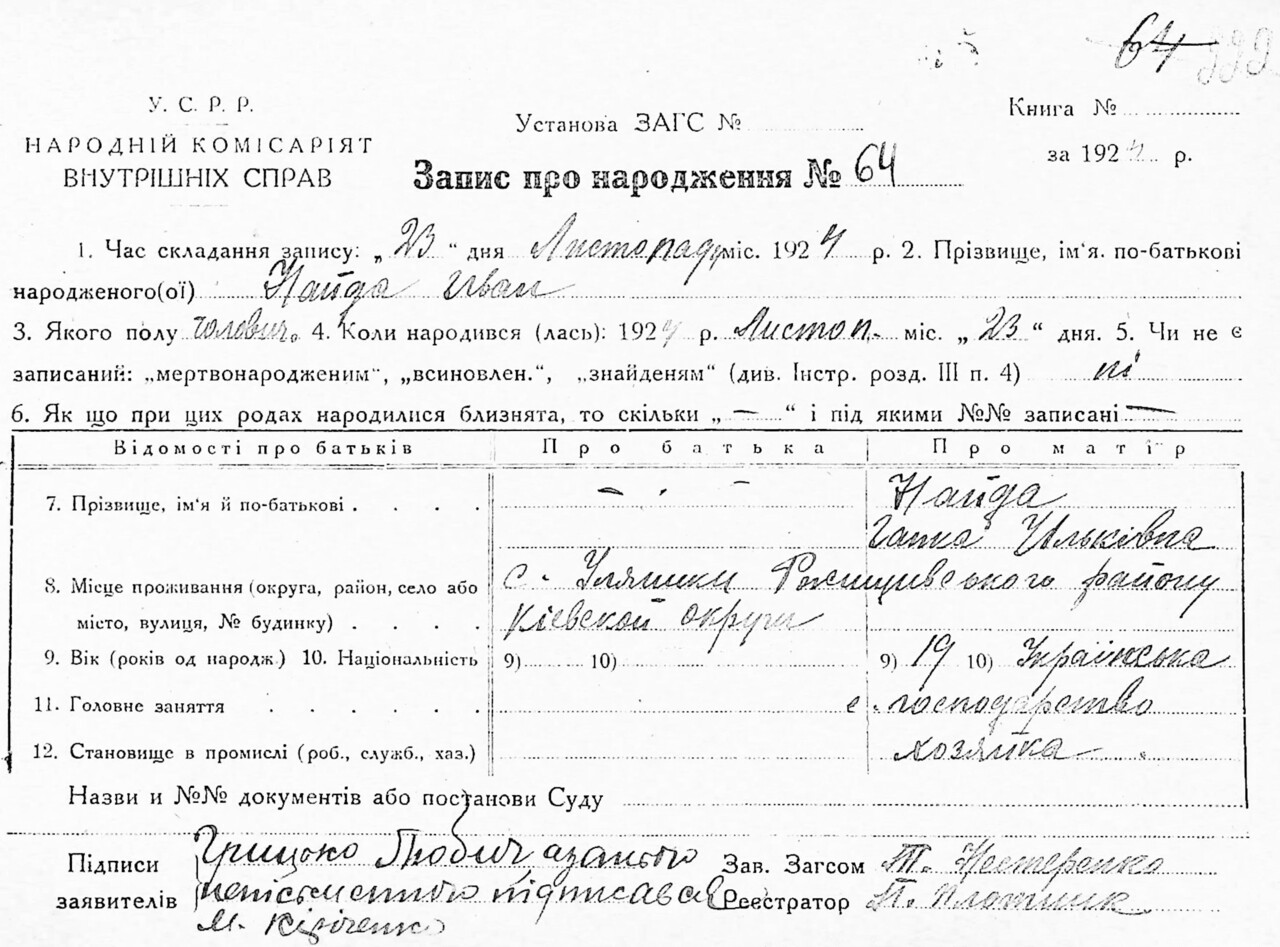 64
У. С. Р. Р.
НАРОДНІЙ КОМІСАРІЯТ
ВНУТРІШНІХ СПРАВ
Установа ЗАГС №
Книга №
за 1924 р.
Запис про народження № 64
1. Час складання запису: „23“ дня Листопаду міс. 1924 р. 2. Прізвище, ім'я. по-батькові
народженого(ої) Найда Іван
3. Якого полу чоловіч. 4. Коли народився (лась): 1924 р. Листоп. міс. „23“ дня. 5. Чи не є
записаний: „мертвонародженим“, „всиновлен.“, „знайденям“ (див. Інстр. розд. III п. 4) ні
6. Як що при цих родах народилися близнята, то скільки „—“ і під якими №№ записані —
Відомості про батьків Про батька Про матір
7. Прізвище, ім'я й по-батькові . . . . — Найда
Ганна Ільківна
8. Місце проживання (округа, район, село або с. Уляники Району
місто, вулиця, № будинку) . . . . Кіевской округи
9. Вік (років од народж.) 10. Національність 9) 10) 9) 19 10) Українська
11. Головне заняття . . . . . . с. господарство
12. Становище в промислі (роб., служб., хаз.) хозяйка
Назви и №№ документів або постанови Суду
Підписи Грицько Зав. Загсом Т. Нестеренко
заявителів підписався Реєстратор П. Плотник
М. Кіріченко